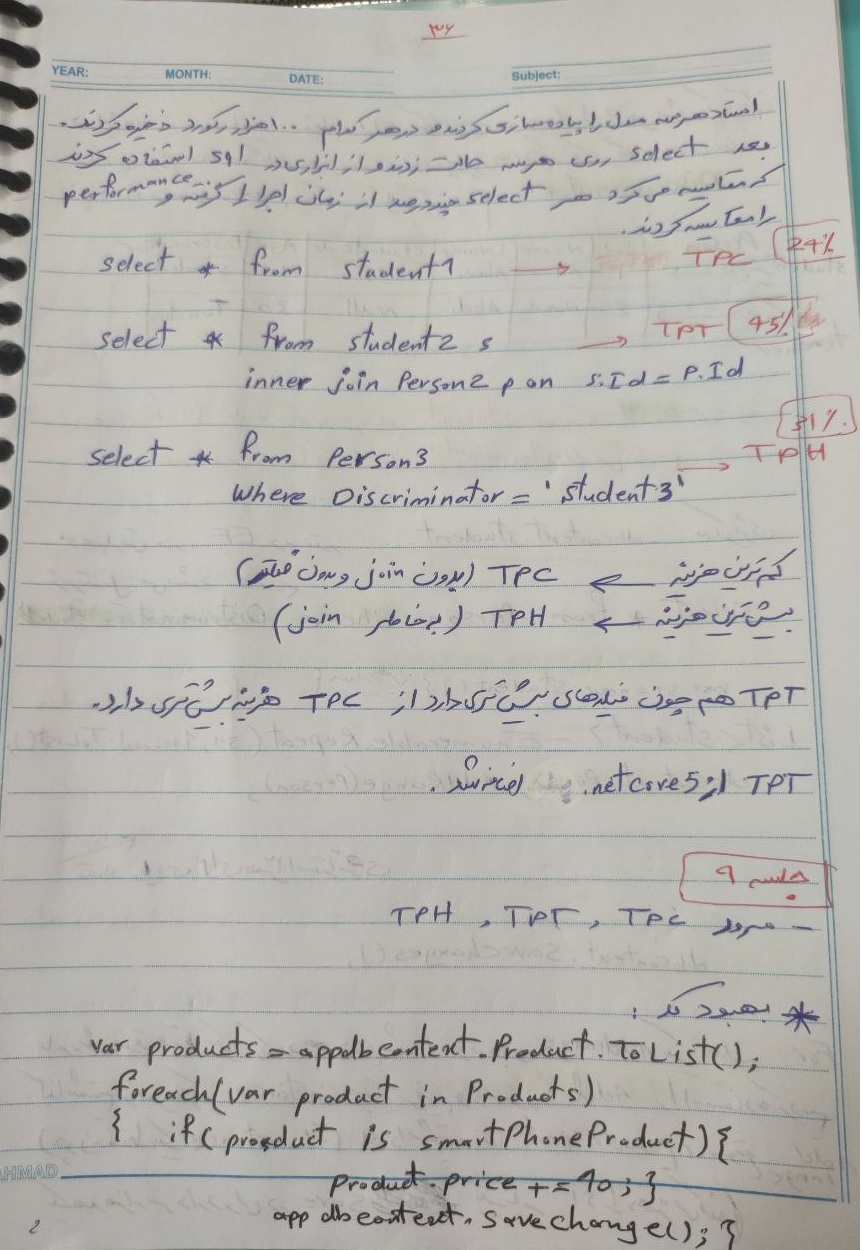 ۳۶
YEAR: MONTH: DATE: Subject:
استاد هر سه مدل را پیاده سازی کردند و در هر کدام ۱۰۰ هزار رکورد ذخیره کردند.
بعد select روی هر سه حالت زدند و از ابزاری در استفاده کردند
که مقایسه می کرد هر select چند درصد از زمان اجرا را گرفته و performance
را مقایسه کردند.
select * from student1 → TPC 24%
select * from student2 s → TPT 45%
inner join Person2 p on s.Id = P.Id
31%
select * from Person3 → TPH
Where Discriminator = 'student3'
کم ترین هزینه ← TPC (بدون join و بدون فیلتر)
بیش ترین هزینه ← TPH (به خاطر join)
TPT هم چون فیلدهای بیش تری دارد از TPC هزینه بیش تری دارد.
TPT از .netcore5 اضافه شد.
جلسه ۹
- مرور TPH , TPT , TPC
* بهبود کد :
var products = appdbcontext.Product.ToList();
foreach(var product in Products)
{ if( product is smartPhoneProduct) {
Product.price += 10; }
app dbcontext. savechange(); }
AHMAD
2